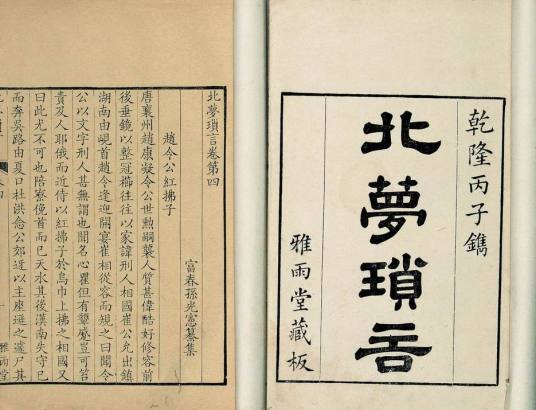 乾隆丙子鐫
北夢瑣言
雅雨堂藏板
北夢瑣言卷第四
富春孫光憲纂集
趙令公紅拂子
唐襄州趙康凝令公世勲嗣襲人質甚偉酷好修容前
後垂鏡以整冠櫛往往以家諱刑人相國崔公允出鎮
湖南由峴首趙令逢迎開宴崔相從容而規之曰聞令
公以文字刑人甚無謂也聞名心瞿但有顰蹙豈可笞
責及人耶俄而近侍以紅拂子於烏巾上拂之相國又
曰此尤不可也陪寮俛首而已天水其後漢南失守已
而奔吳路由夏口杜洪念公郊迎以主座遜之遽尸其
雅雨堂